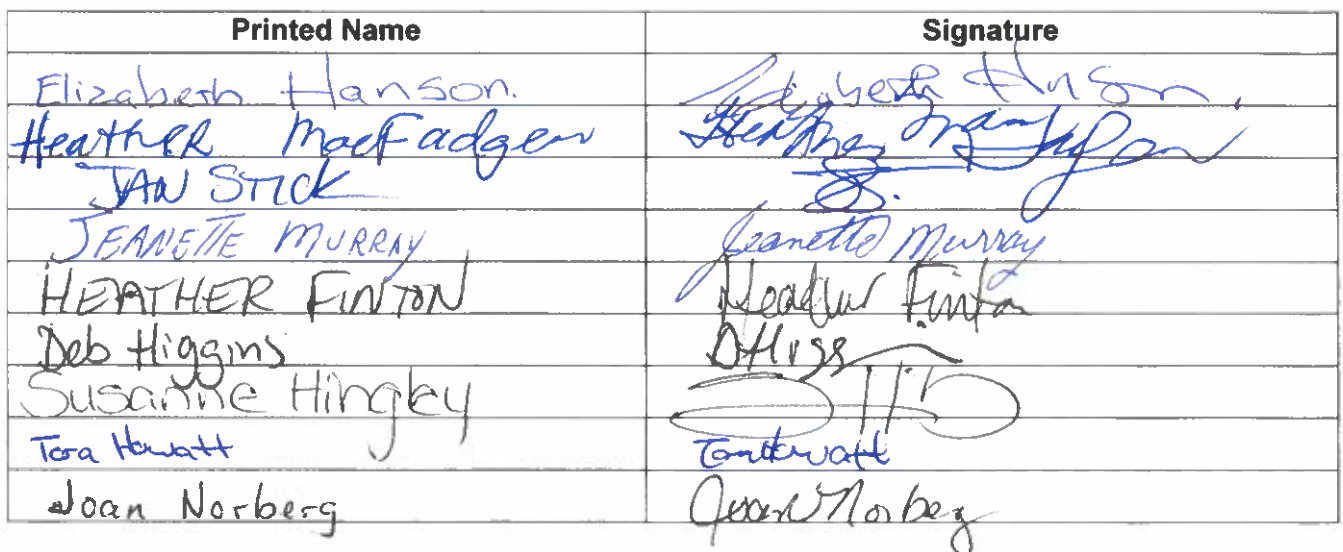 Printed Name Signature
Elizabeth Hanson.
Heather MacFadgen
JAN STICK
JEANETTE MURRAY Jeanette Murray
HEATHER FINTON Heather Finton
Deb Higgins
Susanne Hingley
Tara Howatt Tara Howatt
Joan Norberg Joan Norberg